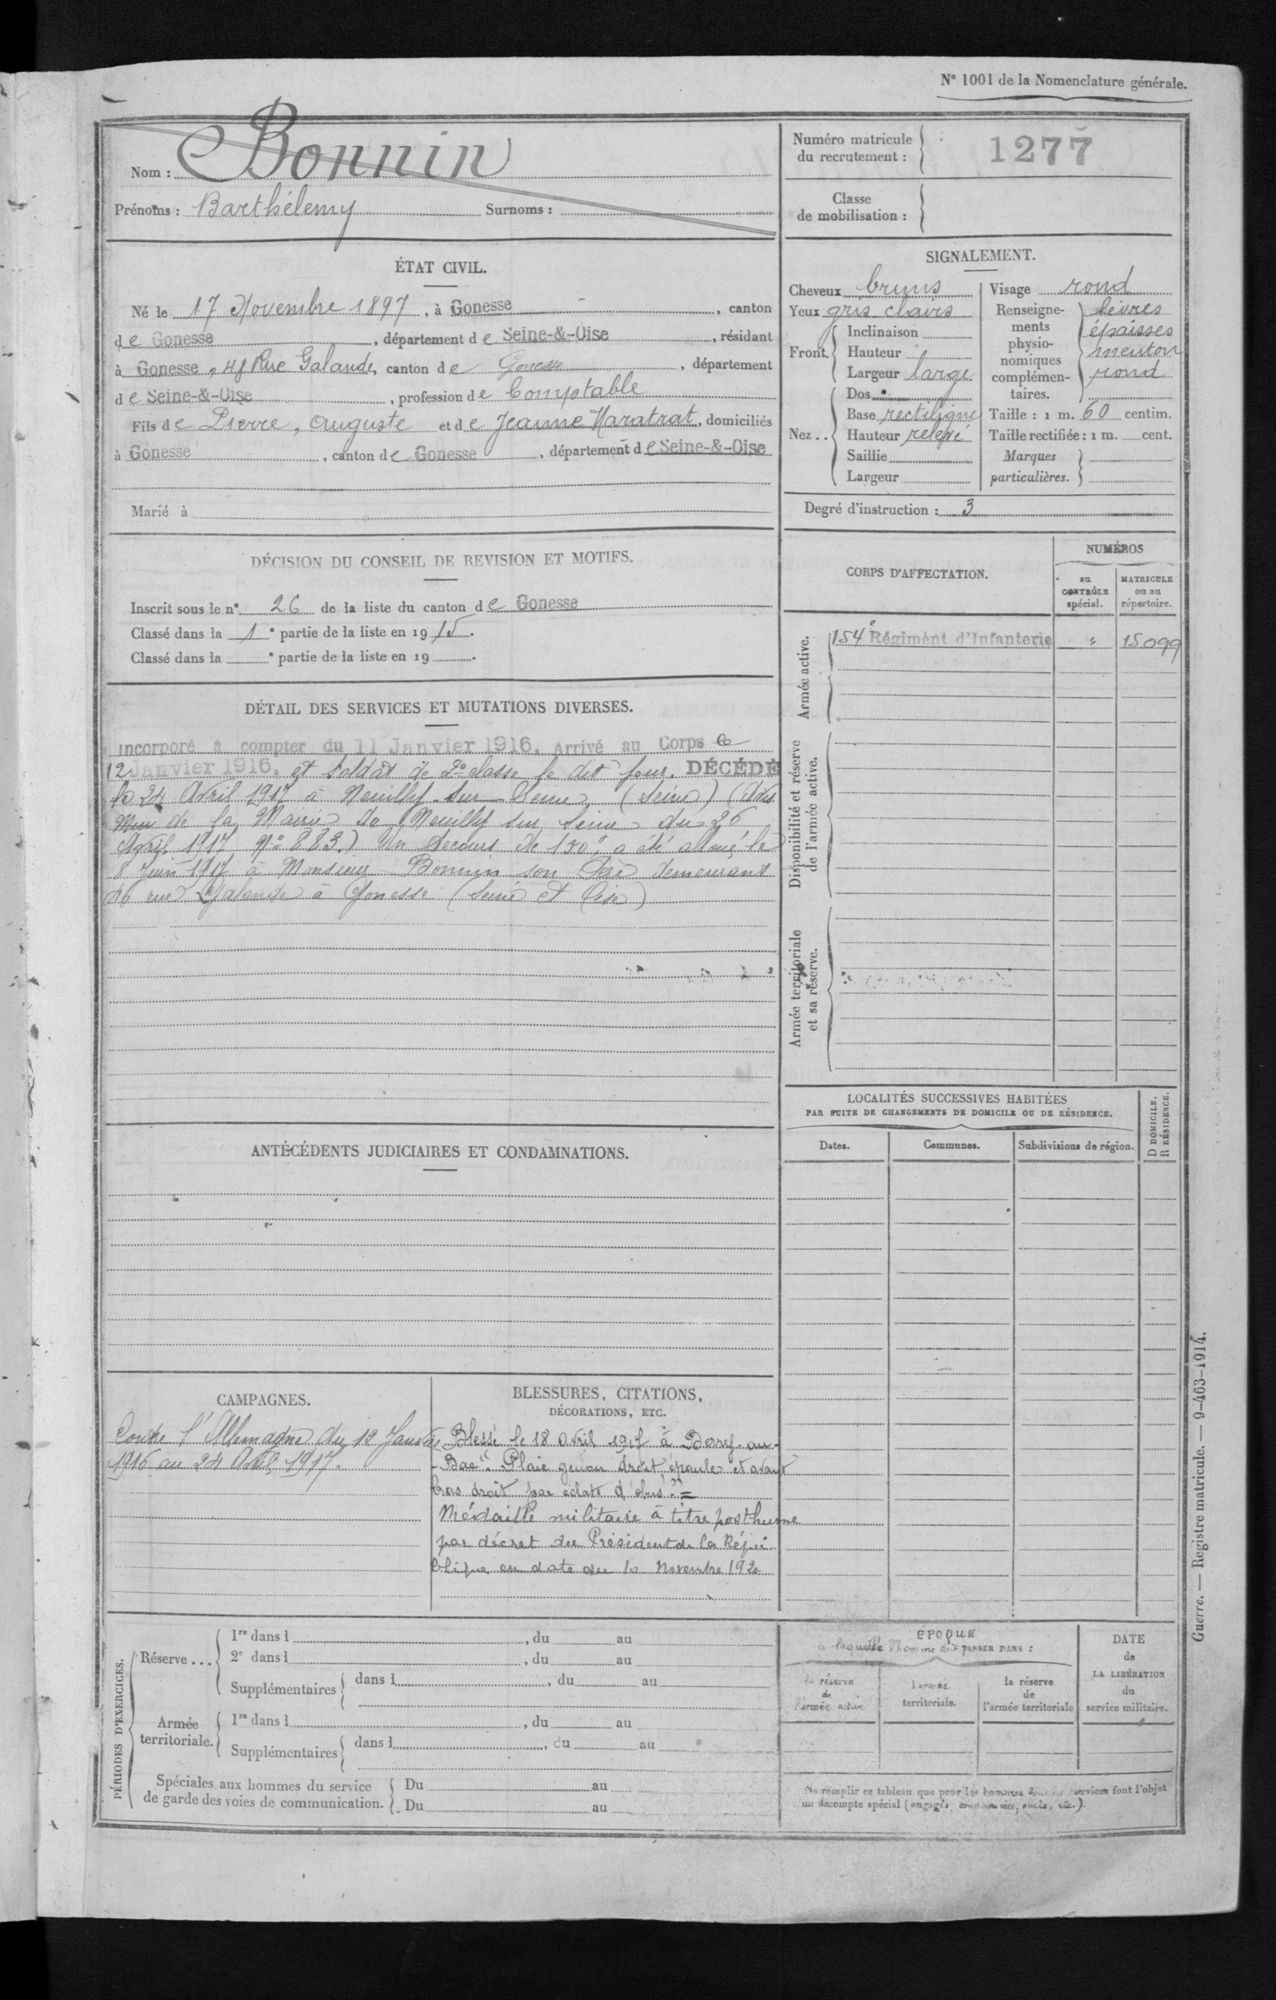 N° 1001 de la Nomenclature générale.
Nom : Bonnin
Prénoms : Barthélemy Surnoms :
Numéro matricule du recrutement : 1277
Classe de mobilisation :
ÉTAT CIVIL.
Né le 17 Novembre 1897, à Gonesse, canton
de Gonesse, département de Seine-&-Oise, résidant
à Gonesse, Rue Galande, canton de Gonesse, département
de Seine-&-Oise, profession de Comptable
Fils de Pierre, Auguste et de Jeanne Maratrat, domiciliés
à Gonesse, canton de Gonesse, département de Seine-&-Oise
Marié à
SIGNALEMENT.
Cheveux bruns
Yeux gris clairs
Front. Inclinaison
Hauteur
Largeur large
Nez.. Dos
Base rectiligne
Hauteur relevé
Saillie
Largeur
Visage rond
Renseignements physionomiques complémentaires. lèvres épaisses menton rond
Taille : 1 m. 60 centim.
Taille rectifiée : 1 m. cent.
Marques particulières.
Degré d'instruction : 3
DÉCISION DU CONSEIL DE REVISION ET MOTIFS.
Inscrit sous le n° 26 de la liste du canton de Gonesse
Classé dans la 1e partie de la liste en 1915.
Classé dans la e partie de la liste en 19 .
CORPS D'AFFECTATION.
NUMÉROS
au CONTRÔLE spécial.
MATRICULE ou au répertoire.
Armée active.
154e Régiment d'Infanterie " 15099
Disponibilité et réserve de l'armée active.
Armée territoriale et sa réserve.
DÉTAIL DES SERVICES ET MUTATIONS DIVERSES.
Incorporé à compter du 11 Janvier 1916. Arrivé au Corps le
12 Janvier 1916, et soldat de 2e classe le dit jour. DÉCÉDÉ
le 24 Avril 1917 à Neuilly sur Seine (Seine) (Avis
de la Mairie de Neuilly sur Seine du 26
Avril 1917 N° 883.) Un secours de 150f a été alloué le
8 Juin 1917 à Monsieur Bonnin son Père demeurant
26 rue Galande à Gonesse (Seine et Oise)
ANTÉCÉDENTS JUDICIAIRES ET CONDAMNATIONS.
LOCALITÉS SUCCESSIVES HABITÉES
PAR SUITE DE CHANGEMENTS DE DOMICILE OU DE RÉSIDENCE.
Dates.
Communes.
Subdivisions de région.
D DOMICILE. R RÉSIDENCE.
CAMPAGNES.
Contre l'Allemagne du 12 Janvier
1916 au 24 Avril 1917.
BLESSURES, CITATIONS,
DÉCORATIONS, ETC.
Blessé le 18 avril 1917 à Berry-au-
-Bac". Plaie genou droit épaule et avant
bras droit par éclats d'obus".=
Médaille militaire à titre posthume
par décret du Président de la Répu-
blique en date du 10 Novembre 1920
PÉRIODES D'EXERCICES.
Réserve... 1re dans l , du au
2e dans l , du au
Supplémentaires dans l , du au
Armée territoriale. 1re dans l , du au
Supplémentaires dans l , du au
Spéciales aux hommes du service de garde des voies de communication. Du au
Du au
ÉPOQUE
à laquelle l'homme doit PASSER DANS :
la réserve de l'armée active
l'armée territoriale.
la réserve de l'armée territoriale
DATE de LA LIBÉRATION du service militaire.
Ne remplir ce tableau que pour les hommes dont les services font l'objet
un décompte spécial (engagés, omis, etc.)
Guerre. — Registre matricule. — 9-463-1914.